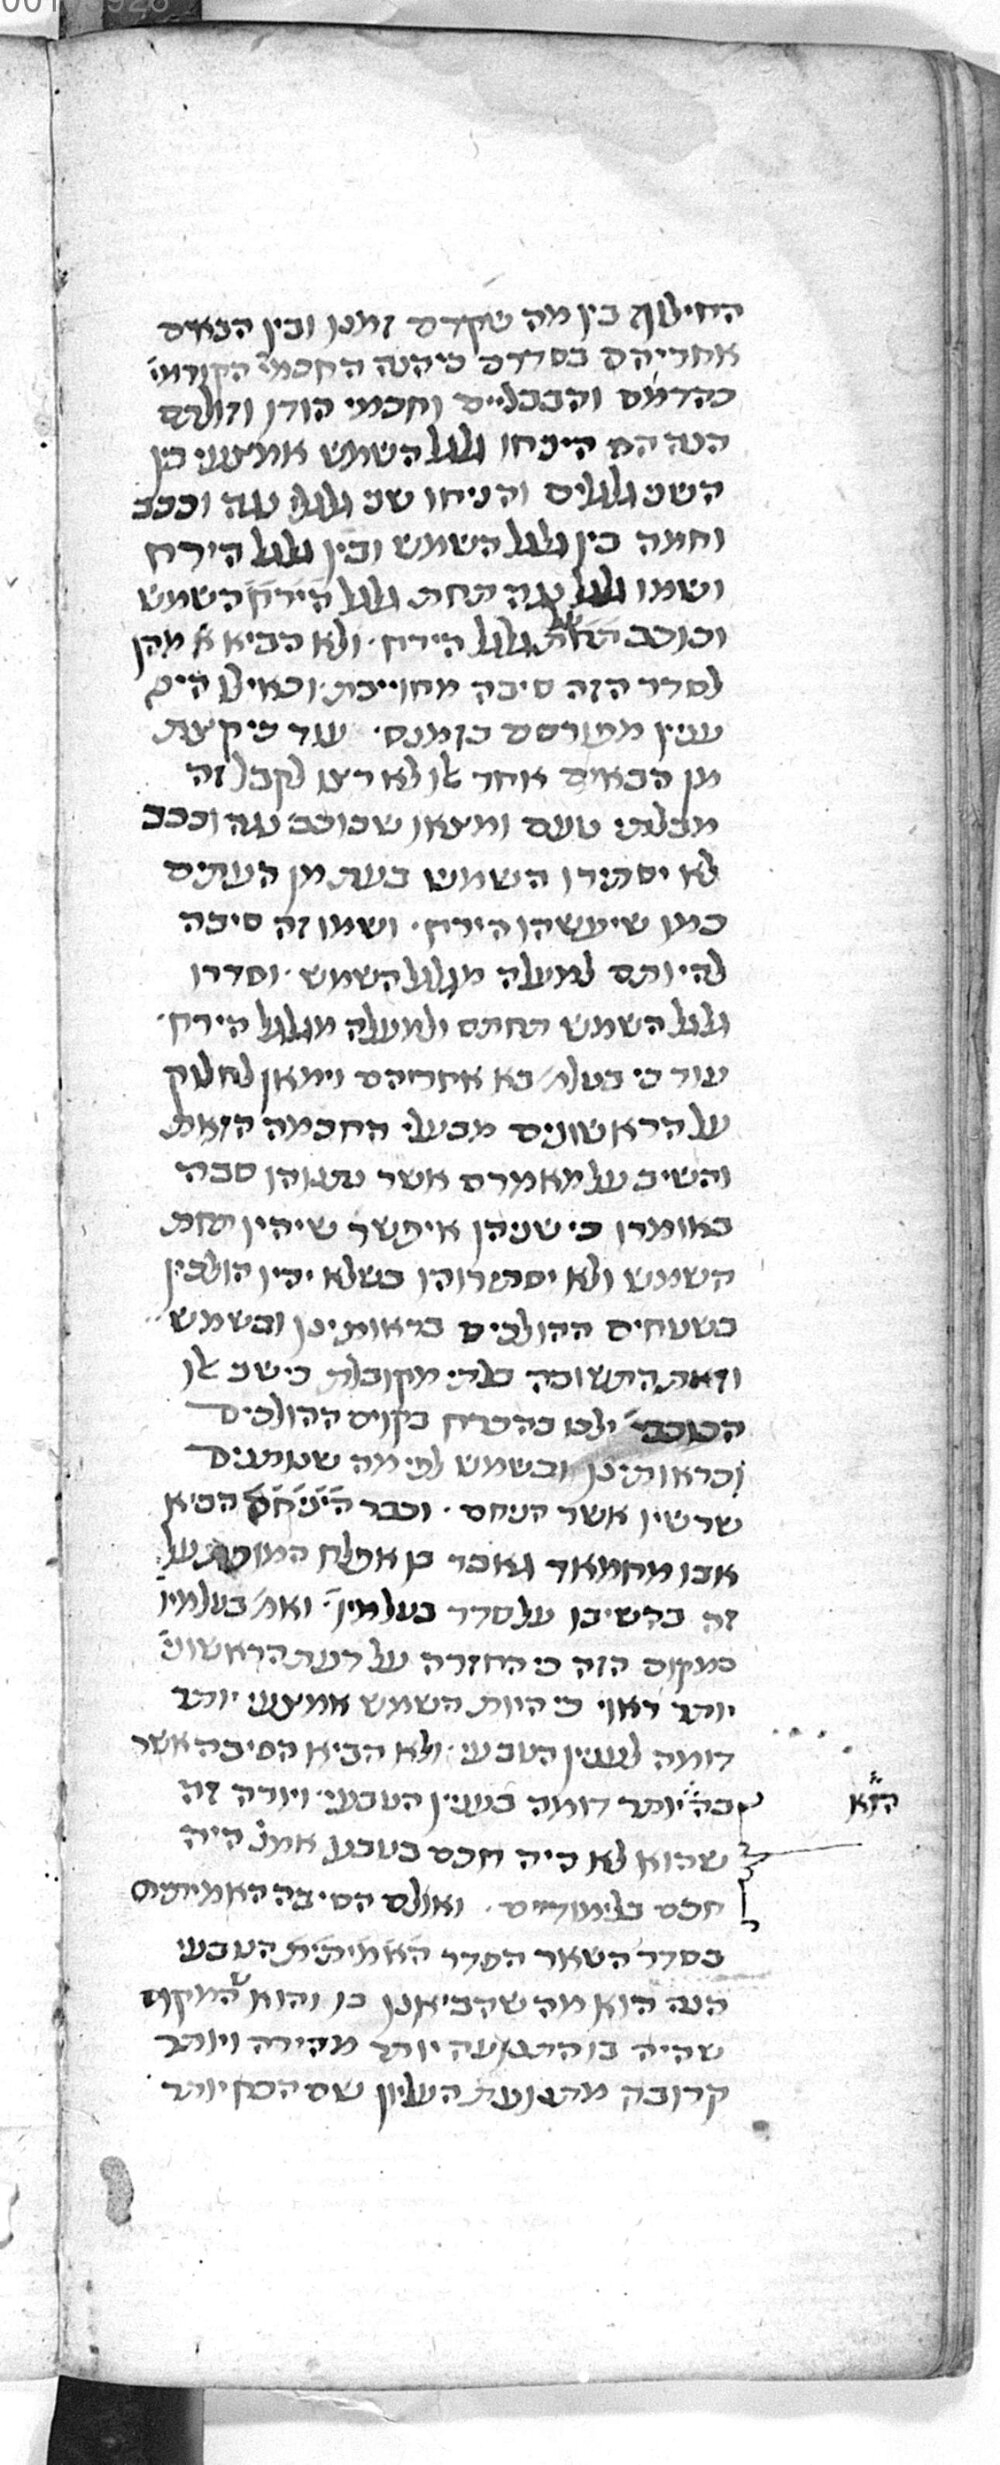 החילוף בין מה שקדם זמנו ובין הבאים
אחריהם בסדרם כי הנה החכמי' הקודמי'
כהרמס והבבליים וחכמי הודו וזולתם
הנה הם היניחו גלגל השמש אמצעי בין
השב גלגלים והניחו שני גלגלי נגה וככב
וחמה בין גלגל השמש ובין גלגל הירח
ושמו גלגל נגה תחת גלגל הירח השמש
וכוכב תחת גלגל הירח. ולא הביא א' מהן
לסדר הזה סיבה מחוייבת. וכאילו היה
ענין מפורסם בזמנם. עוד כי קצת
מן הבאים אחר אלו לא רצו לקבל זה
מבלתי טעם ומצאו שכוכב נגה וככב
לא יסתירו השמש בעת מן העתים
כמו שיעשהו הירח. ושמו זה סיבה
להיותם למעלה מגלגל השמש. וסדרו
גלגל השמש תחתם ולמעלה מגלגל הירח.
עוד כי בטלמ' בא אחריהם וימאן לחלוק
על הראשונים מבעלי החכמה הזאת
והשיב על מאמרם אשר נתנוהו סבה
באומרו כי שניהן איפשר שיהיו תחת
השמש ולא יסתירוהו בשלא יהיו הולכין
בשטחים ההולכים בראותינו ובשמש
וזאת התשובה בלתי מקובלת כי שני אלו
הכוכבי' ילכו בהכרח בקוים ההולכים
בראותינו ובשמש לפי מה שנותנים
שרשיו אשר הניחם. וכבר היניחם הביא
אבו מחמאד גאבר בן אפלח המופת על
זה בהשיבו על סדר בטלמיו'. ואמ' בטלמיו'
במקום הזה כי החזרה על דעת הראשוני'
יותר ראוי כי היות השמש אמצעי יותר
דומה לענין הטבעי. ולא הביא הסיבה אשר
בה יותר דומה בענין הטבעי. ויורה זה
הוא
שהוא לא היה חכם בטבע אמנ' היה
חכם בלימודיים. ואולם הסיבה האמיתית
בסדר השאר הסדר האמיתית הטבעי
הנה הוא מה שהביאנו בו והוא שהמקום
שהיה בו התנועה יותר מהירה ויותר
קרובה מתנועת העליון שם הכח יותר